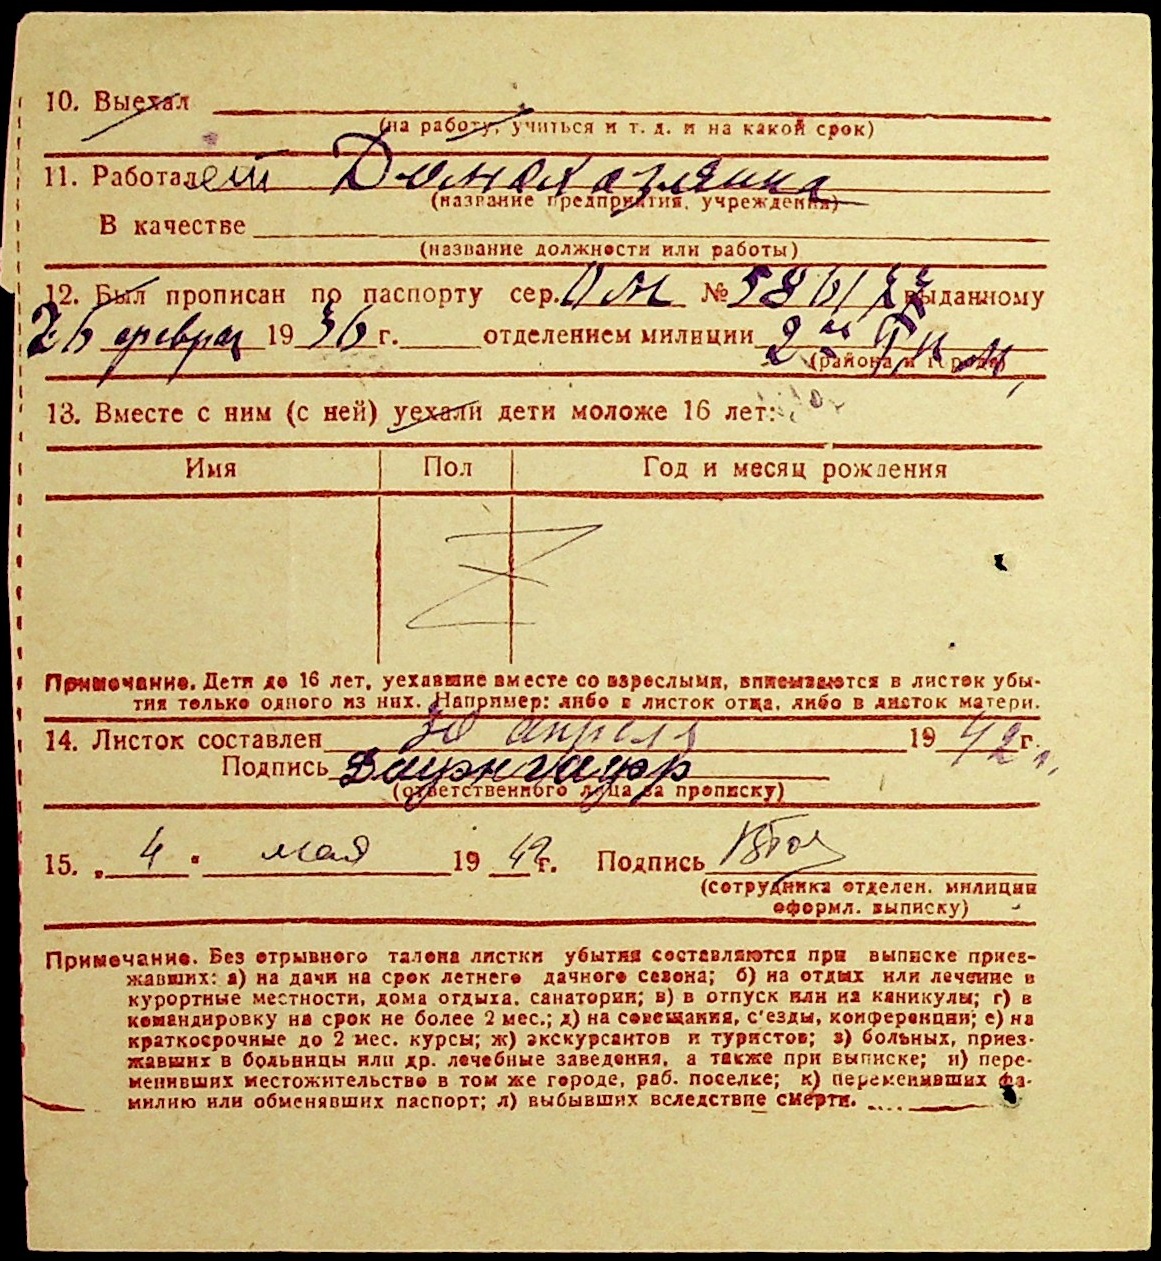 10. Выехал
(на работу, учиться и т. д. и на какой срок)
11. Работает Домохозяйка
(название предприятия, учреждения)
В качестве
(название должности или работы)
12. Был прописан по паспорту сер. № выданному
26 феврал 1936 г. отделением милиции 2
(района и города)
13. Вместе с ним (с ней) уехали дети моложе 16 лет:
Имя Пол Год и месяц рождения
Z
Примечание. Дети до 16 лет, уехавшие вместе со взрослыми, вписываются в листок убы-
тия только одного из них. Например: либо в листок отца, либо в листок матери.
14. Листок составлен 30 апреля 1942 г.
Подпись
(ответственного лица за прописку)
15. „4" мая 1942 г. Подпись
(сотрудника отделен. милиции
оформл. выписку)
Примечание. Без отрывного талона листки убытия составляются при выписке приез-
жавших: а) на дачи на срок летнего дачного сезона; б) на отдых или лечение в
курортные местности, дома отдыха, санатории; в) в отпуск или на каникулы; г) в
командировку на срок не более 2 мес.; д) на совещания, с'езды, конференции; е) на
краткосрочные до 2 мес. курсы; ж) экскурсантов и туристов; з) больных, приез-
жавших в больницы или др. лечебные заведения, а также при выписке; и) пере-
менивших местожительство в том же городе, раб. поселке; к) переменивших фа-
милию или обменявших паспорт; л) выбывших вследствие смерти.